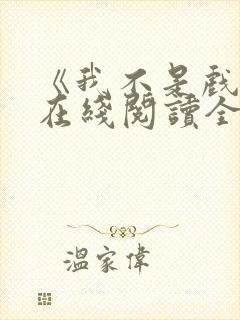 《我不是戲
在綫閱讀全
溫家偉